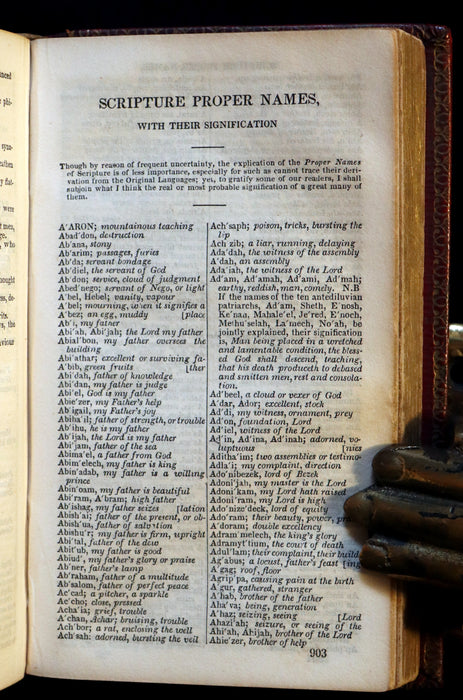 inced
phi-
syno-
eathen
y flat-
were
mes
who
nought
ns, de-
rits.
viour
SCRIPTURE PROPER NAMES,
WITH THEIR SIGNIFICATION
Though by reason of frequent uncertainty, the explication of the Proper Names
of Scripture is of less importance, especially for such as cannot trace their deri-
vation from the Original Languages; yet, to gratify some of our readers, I shall
subjoin what I think the real or most probable signification of a great many of
them.
A′ARON; mountainous teaching
Abad′don, destruction
Ab′ana, stony
Ab′arim; passages, furies
Ab′da; servant bondage
Ab′diel, the servant of God
Ab′don; service, cloud of judgment
Abed′nego; servant of Nego, or light
A′bel, Hebel; vanity, vapour
A′bel; mourning, when it signifies a
A′bez; an egg, muddy [place
Ab′i, my father
Abi′ah, Abi′jah; the Lord my father
Abial′bon, my father oversees the
building
Abi′athar; excellent or surviving fa-
A′bib, green fruits [ther
Abi′dah, father of knowledge
Abi′dan, my father is judge
Abi′el, God is my father
Abie′zer, my Father's help
Ab′igail, my Father's joy
Abiha′il; father of strength, or trouble
Abi′hu, he is my father
Ab′ijah, the Lord is my father
Abi′jam, father of the sea
Abima′el, a father from God
Abim′elech, my father is king
Abin′adab, my father is a willing
prince
Abin′oam, my father is beautiful
Abi′ram, Abram; high father
Ab′ishag, my father seizes [lation
Abish′ai; father of the present, or ob-
Abish′ua, father of salvation
Abishu′r; my father is firm, upright
Abi′tal, father of the dew
Abit′ub, my father is good
Abiud′, my father's glory or praise
Ab′ner, father's lamp
Ab′raham, father of a multitude
Ab′salom, father of perfect peace
Ac′cad; a pitcher, a sparkle
Ac′cho; close, pressed
Acha′ia; grief, trouble
A′chan, Achar; bruising, trouble
Ach′bor; a rat, enclosing the well
Ach′sah; adorned, bursting the veil
Ach′saph; poison, tricks, bursting the
lip
Ach zib; a liar, running, delaying
Ada′dah, the witness of the assembly
A′dah, an assembly
Ada′iah, the witness of the Lord
Ad′am, Ad′amah, Ad′ami, Ad′mah;
earthy, reddish, men, comely. N.B
If the names of the ten antediluvian
patriarchs, Ad′am, Sheth, E′nosh,
Ke′naa, Mahale′el, Je′red, E′noch,
Methu′selah, La′mech, No′ah, be
jointly explained, their signification
is, Man being placed in a wretched
and lamentable condition, the bless-
ed God shall descend, teaching,
that his death produceth to debased
and smitten men, rest and consola-
tion.
Ad′beel, a cloud or vexer of God
Ad′dar, Ador; excellent, stock
Ad′di, my witness, ornament, prey
Ad′on, foundation, Lord
Ad′iel, witness of the Lord
Ad′in, Ad′ina, Ad′inah; adorned, vo-
luptuous [nies
Aditha′im; two assemblies or testimo-
Adla′i; my complaint, direction
Ado′nibezek, lord of Bezek
Adoni′jah, my master is the Lord
Adoni′kam, my Lord hath raised
Adoni′ram, my Lord is high
Ado′nize′deck, lord of equity
Ado′ram; their beauty, power, pra
A′doram; double excellency
Adram melech, the king's glory
Adramyt′tium, the court of death
Adul′lam; their complaint, their build
Ag′abus; a locust, father's feast [ing
A′gag; roof, floor
Agrip′pa, causing pain at the birth
A′gur, gathered, stranger
A′hab, brother of the father
Aha′va; being, generation
A′haz; seizing, seeing [Lord
Ahazi′ah; seizure, or seeing of the
Ahi′ah, Ahijah, brother of the Lord
Ahie′zer, brother of help
903